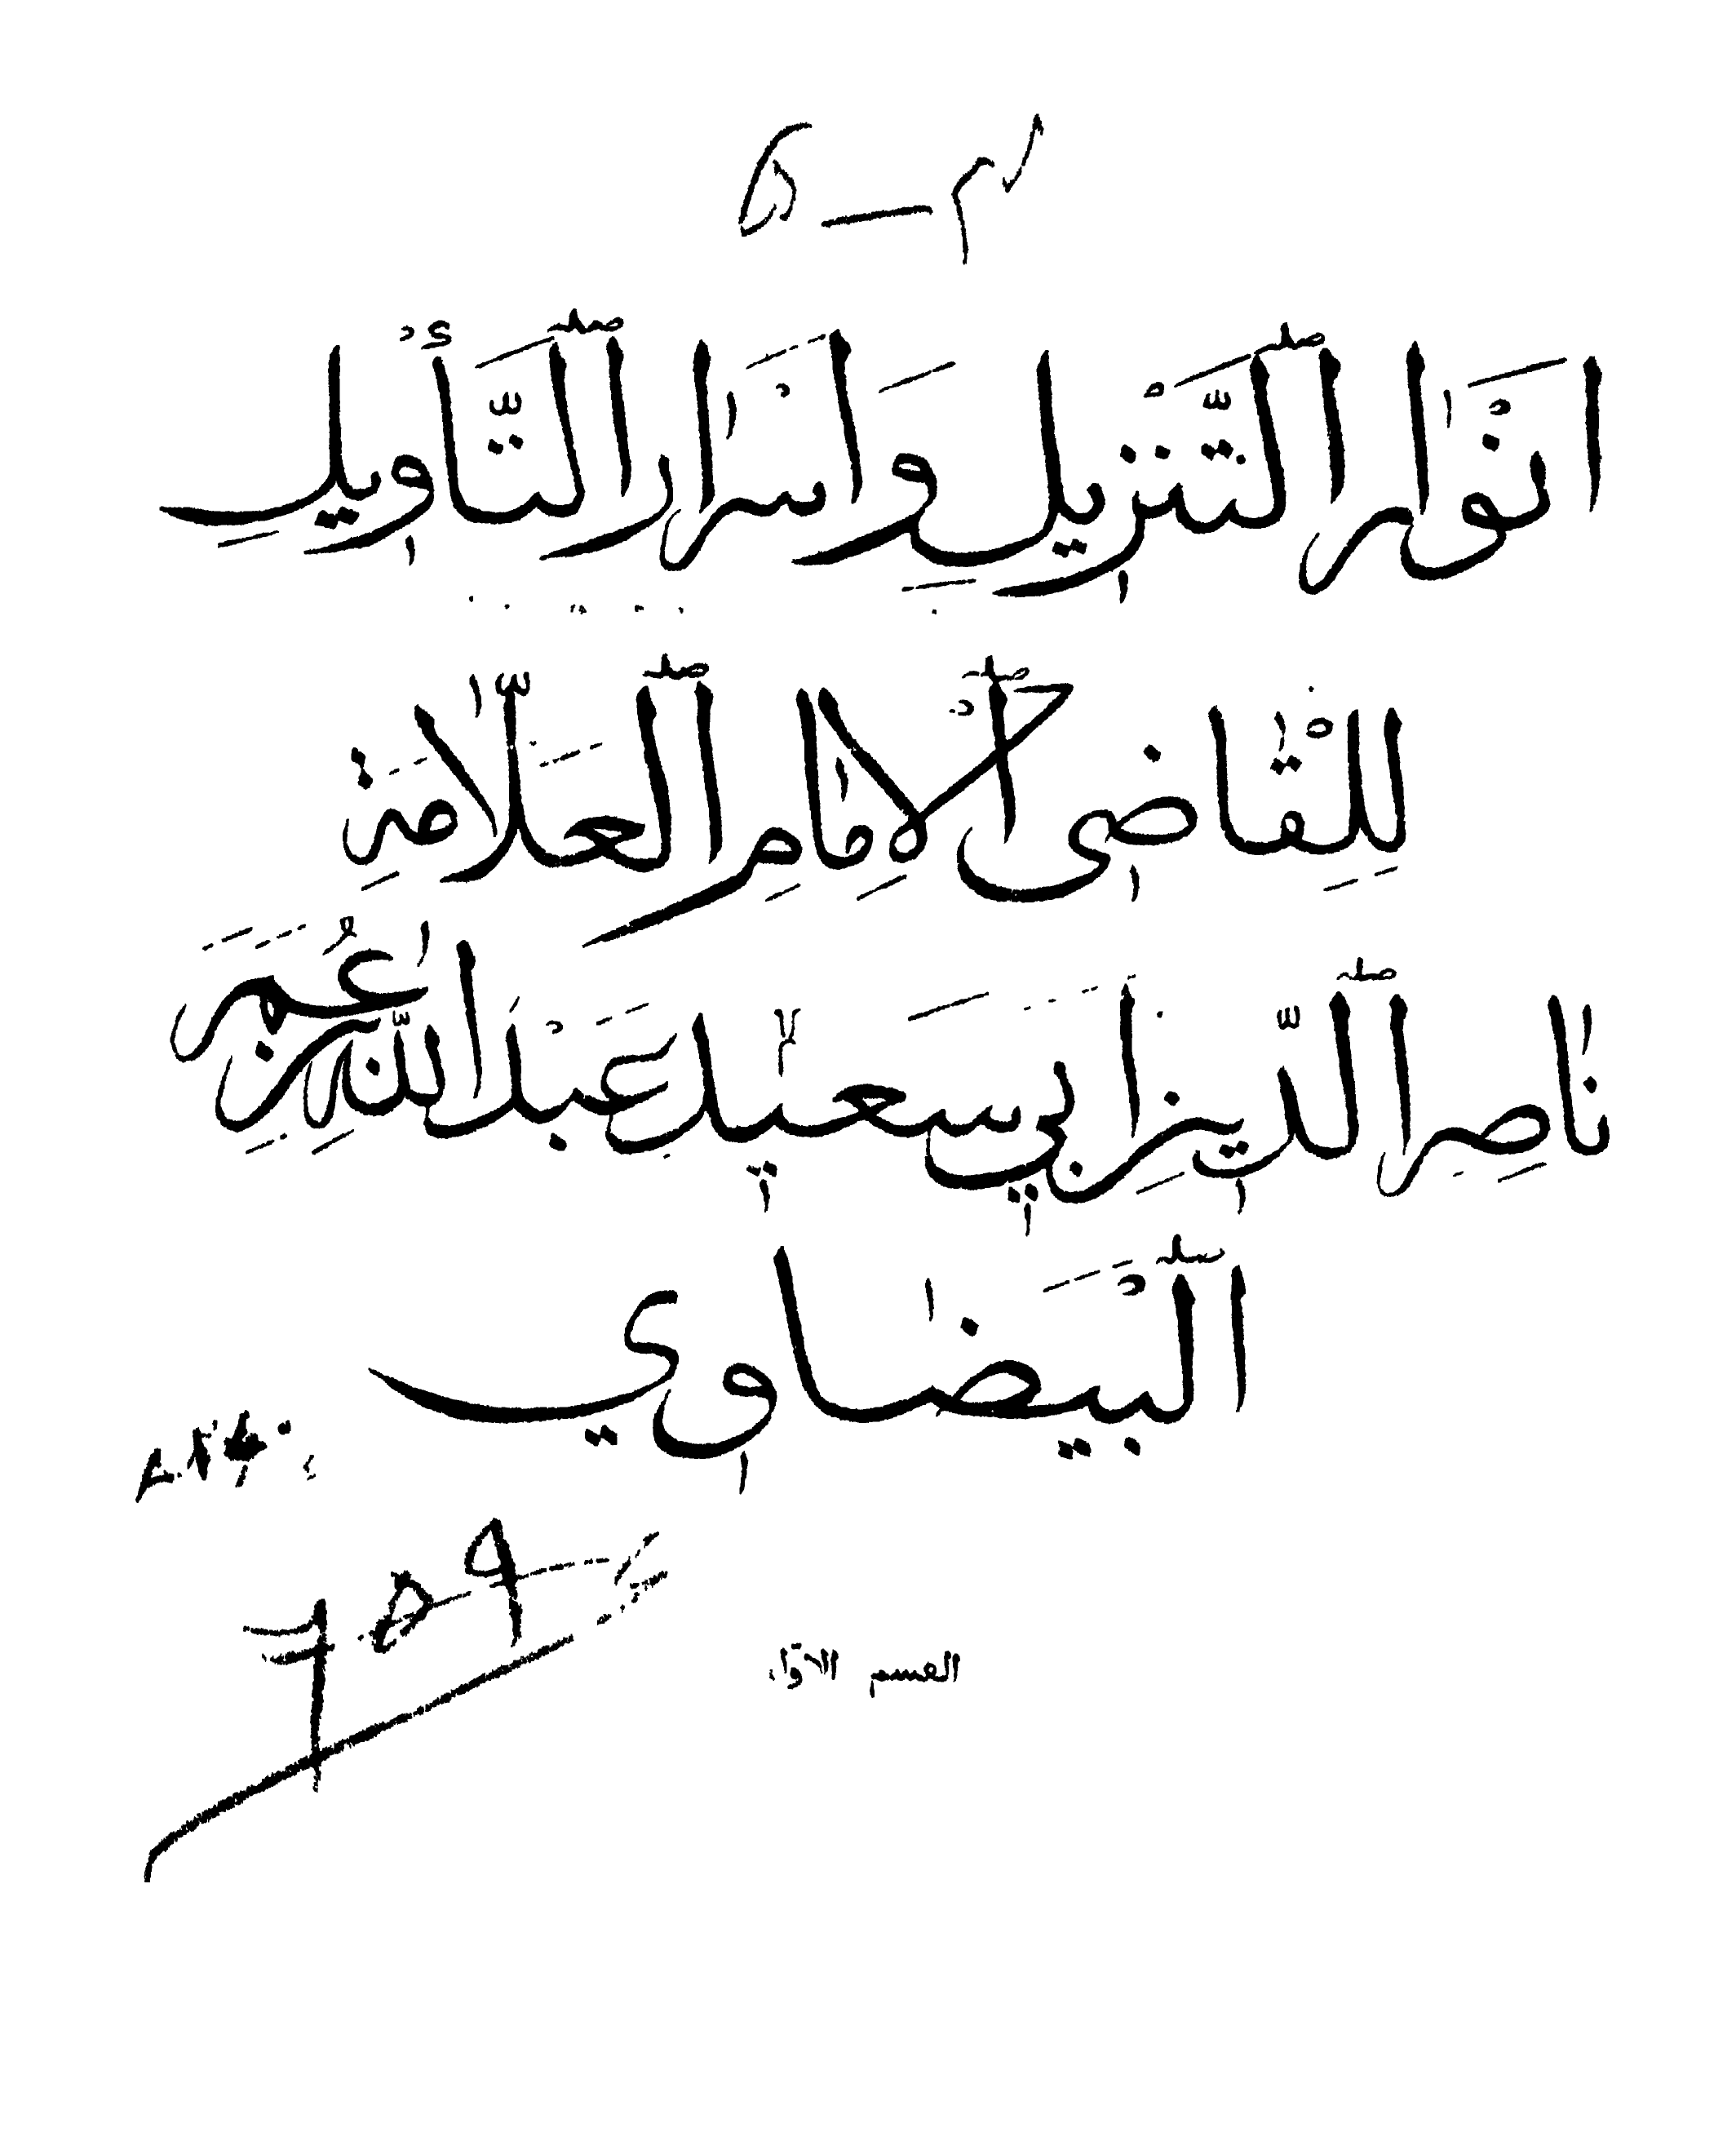 اَنْوٰارُ الَتَّنْزيلِ وَاَسْرٰارُ الَتَّأْويلِ
لِلْقٰاضِى الْاِمٰامِ الْعَلّٰامَةِ
نٰاصِرِ الدّينِ اَبي سَعيٖد عَبْدَ اللّٰهِ بْنِ عُمَرَ
الْبَيْضٰاوي
القسم الاوّل